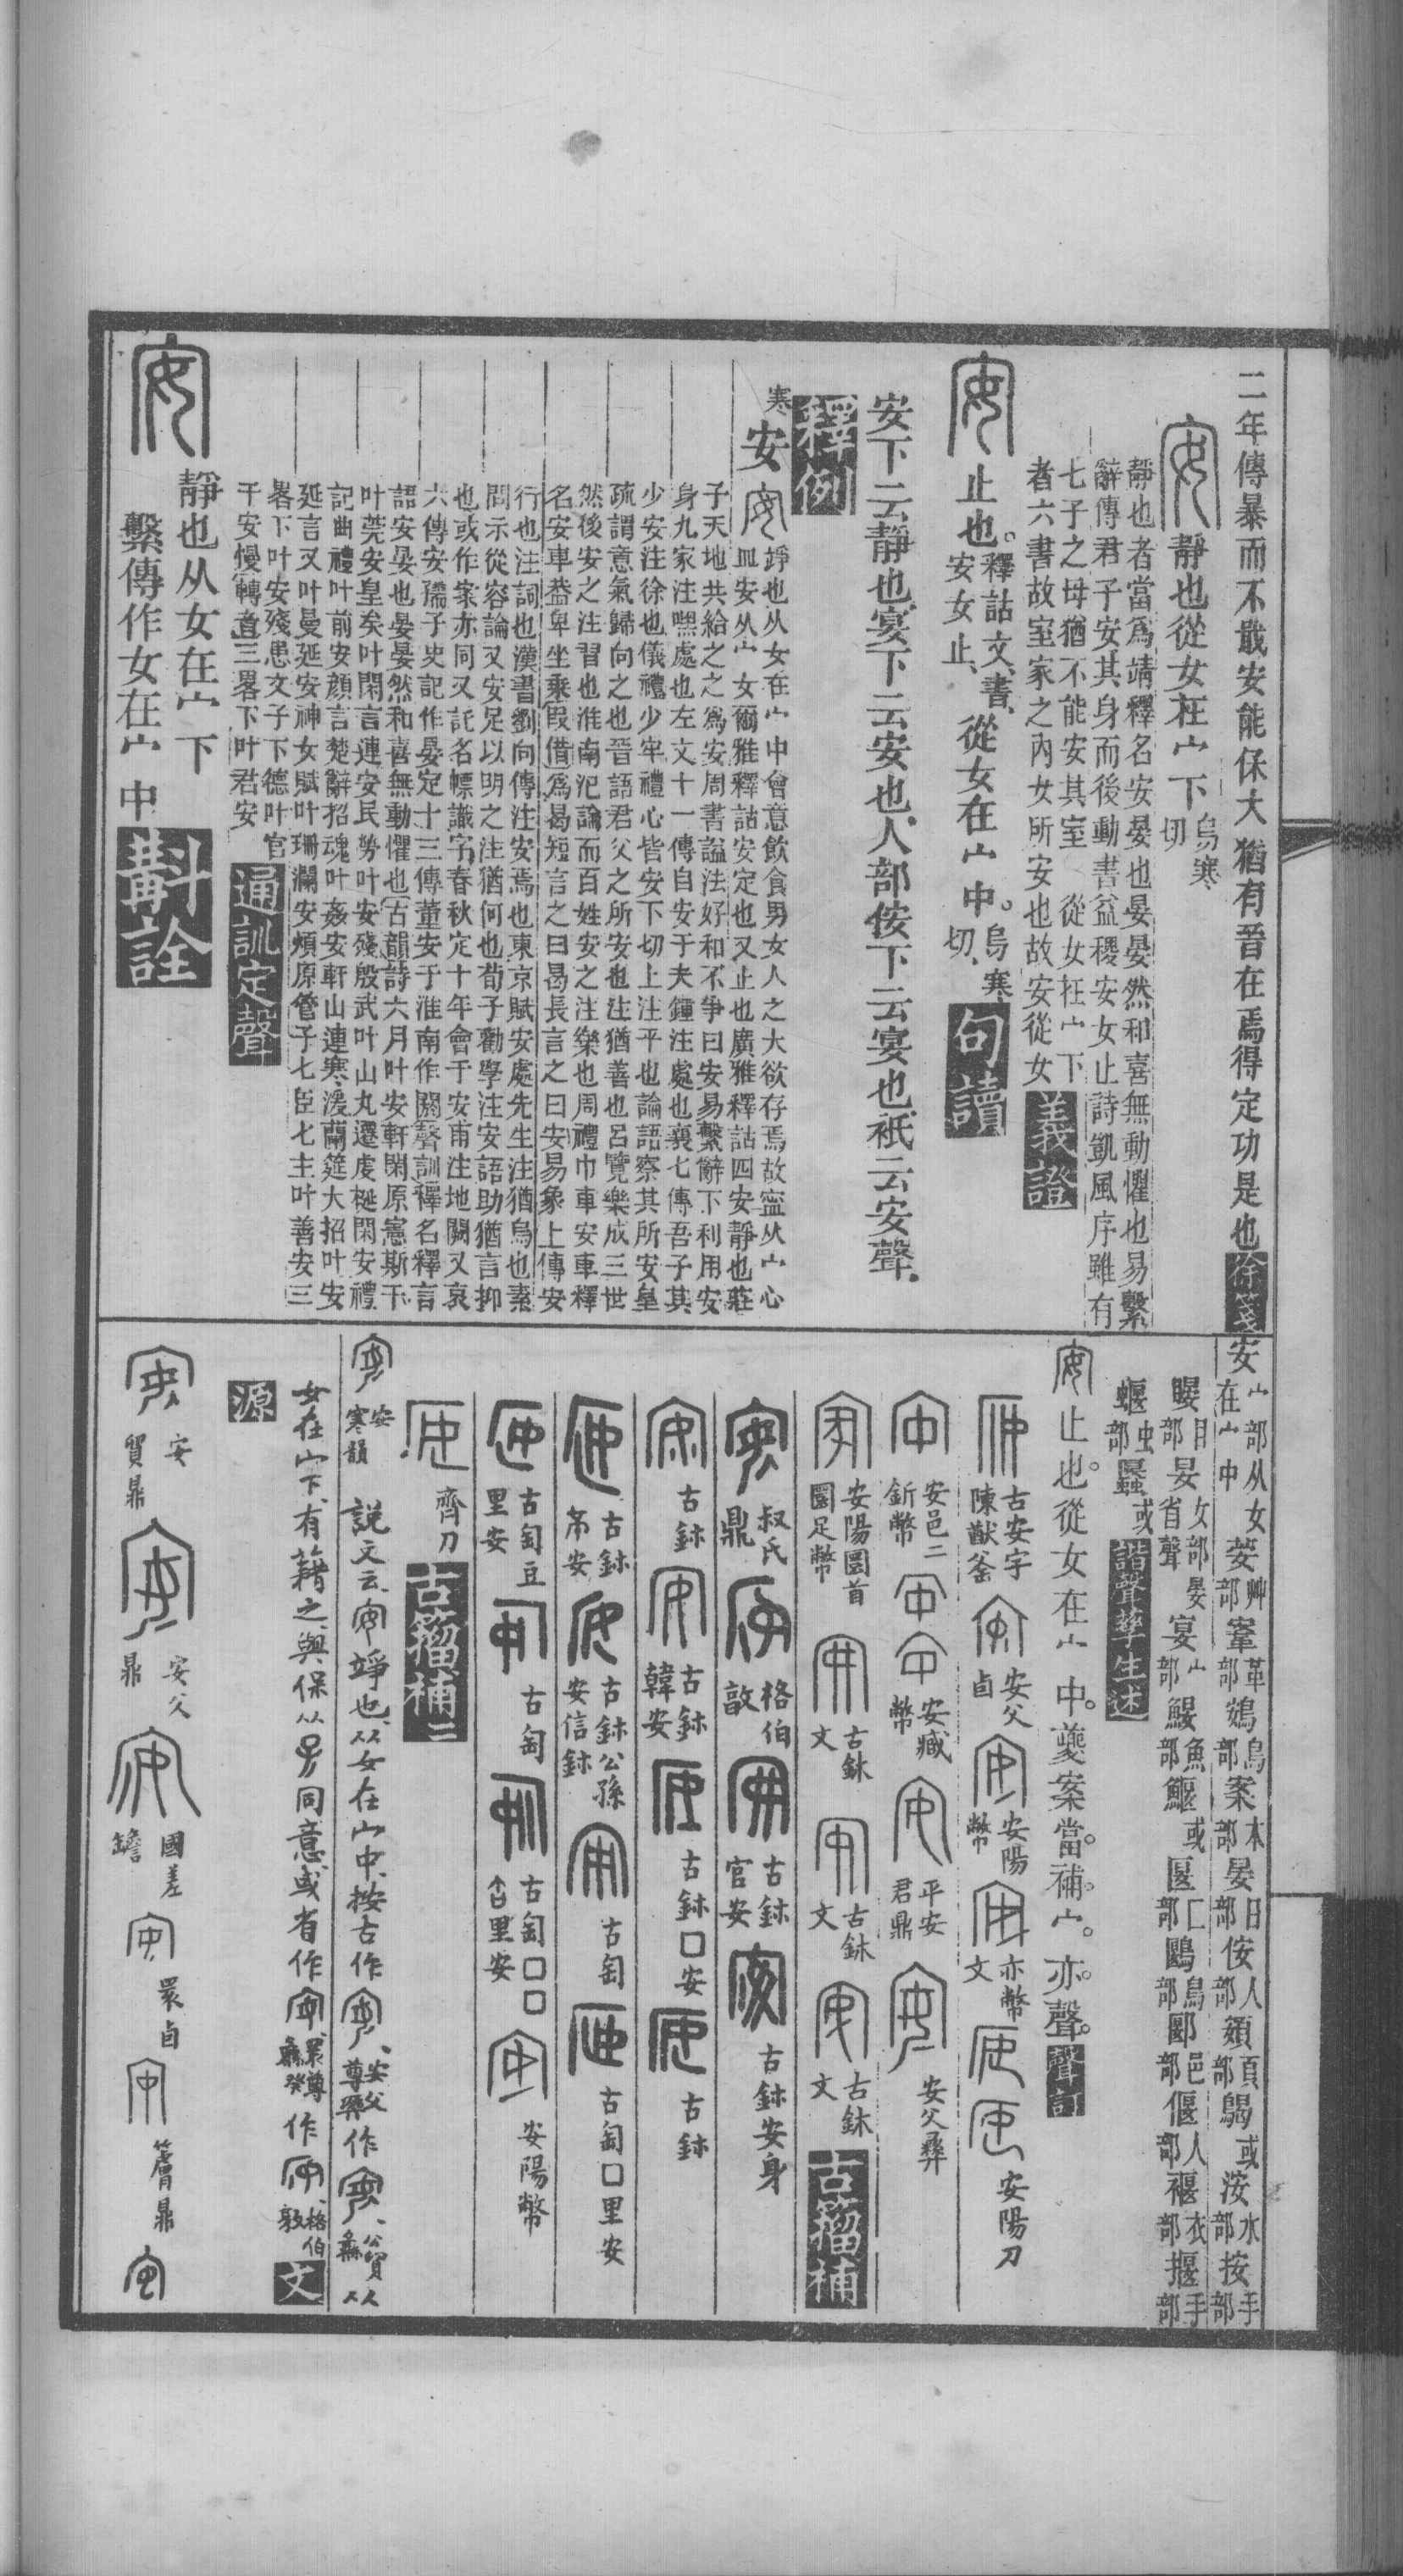 二年傳暴而不戢安能保大猶有晉在焉得定功是也徐箋
靜也從女在宀下烏寒切
靜也者當爲靖釋名安晏也晏晏然和喜無動懼也易繫
辭傳君子安其身而後動書益稷安女止詩凱風序雖有
七子之母猶不能安其室 從女在宀下
者六書故室家之內女所安也故安從女義證
止也。釋詁文、書、安女止、從女在宀中。烏寒切、句讀
安下云靜也、宴下云安也、人部侒下云宴也、祇云安聲、
釋例
寒安
竫也从女在宀中會意飮食男女人之大欲存焉故寍从宀心
皿安从宀女爾雅釋詁安定也又止也廣雅釋詁四安靜也莊
子天地共給之之爲安周書諡法好和不爭曰安易繫辭下利用安
身九家注嘿處也左文十一傳自安于夫鍾注處也襄七傳吾子其
少安注徐也儀禮少牢禮心皆安下切上注平也論語察其所安皇
疏謂意氣歸向之也晉語君父之所安也注猶善也呂覽樂成三世
然後安之注習也淮南氾論而百姓安之注樂也周禮巾車安車釋
名安車葢卑坐乘假借爲曷短言之曰曷長言之曰安易象上傳安
行也注詞也漢書劉向傳注安焉也東京賦安處先生注猶烏也素
問示從容論又安足以明之注猶何也荀子勸學注安語助猶言抑
也或作案亦同又託名幖識字春秋定十年會于安甫注地闕又哀
六傳安孺子史記作晏定十三傳董安于淮南作閼聲訓釋名釋言
語安晏也晏晏然和喜無動懼也古韻詩六月叶安軒閑原憲斯干
叶莞安皇矣叶閑言連安民勞叶安殘殷武叶山丸遷虔梴閑安禮
記曲禮叶前安顏言楚辭招魂叶姦安軒山連寒湲蘭筵大招叶安
延言又叶曼延安神女賦叶珊瀾安煩原管子七臣七主叶善安三
畧下叶安殘患文子下德叶官
干安慢轉音三畧下叶君安通訓定聲
靜也从女在宀下
繫傳作女在宀中斠詮
安宀部从女在宀中荌艸部鞌革部鴳鳥部案木部晏日部侒人部頞頁部䳺或洝水部按手部
䁙目部晏女部晏省聲宴宀部鰋魚部鰋或匽匚部鶠鳥部郾邑部偃人部褗衣部揠手部
蝘虫部䘃或諧聲孳生述
止也。從女在宀中。夔案當補宀亦聲。聲訂
古安字陳猷釜 安父卣 安陽幣 亦幣文 安陽刀
安邑二釿幣 安臧幣 平安君鼎 安父彝
安陽圜首圜足幣 古鉥文 古鉥文 古鉥文 古籀補
叔氏鼎 格伯敦 古鉥官安 古鉥安身
古鉥 古鉥韓安 古鉥□安 古鉥
古鉥帛安 古鉥公孫安信鉥 古匋 古匋□里安
古匋豆里安 古匋 古匋□□里安 安陽幣
齊刀 古籀補二
安寒韻 說文云竫也、从女在宀中、按古作、安父尊彝作、公貿彝、从
女在宀下、有藉之、與保从同意或省作、睘尊彝癸作、格伯敦文
源
安貿鼎 安父鼎 國差𦉜 睘卣 鼎